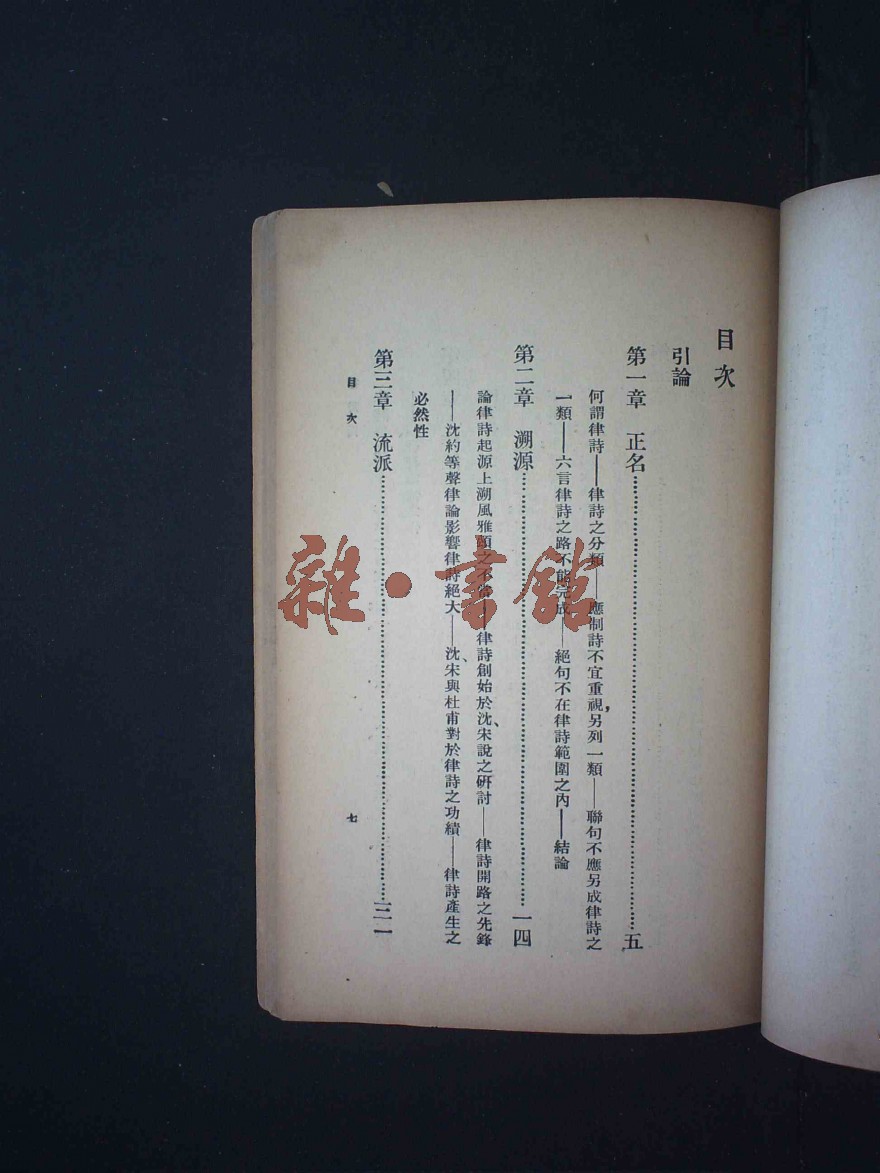 目次
引論
第一章　正名……五
何謂律詩——律詩之分類——應制詩不宜重視，另列一類——聯句不應另成律詩之
一類——六言律詩之路不能完成——絕句不在律詩範圍之內——結論
第二章　溯源……一四
論律詩起源上溯風雅頌之不當——律詩創始於沈、宋說之研討——律詩開路之先鋒
——沈約等聲律論影響律詩絕大——沈、宋與杜甫對於律詩之功績——律詩產生之
必然性
第三章　流派……三一
目次
七
雜·書館